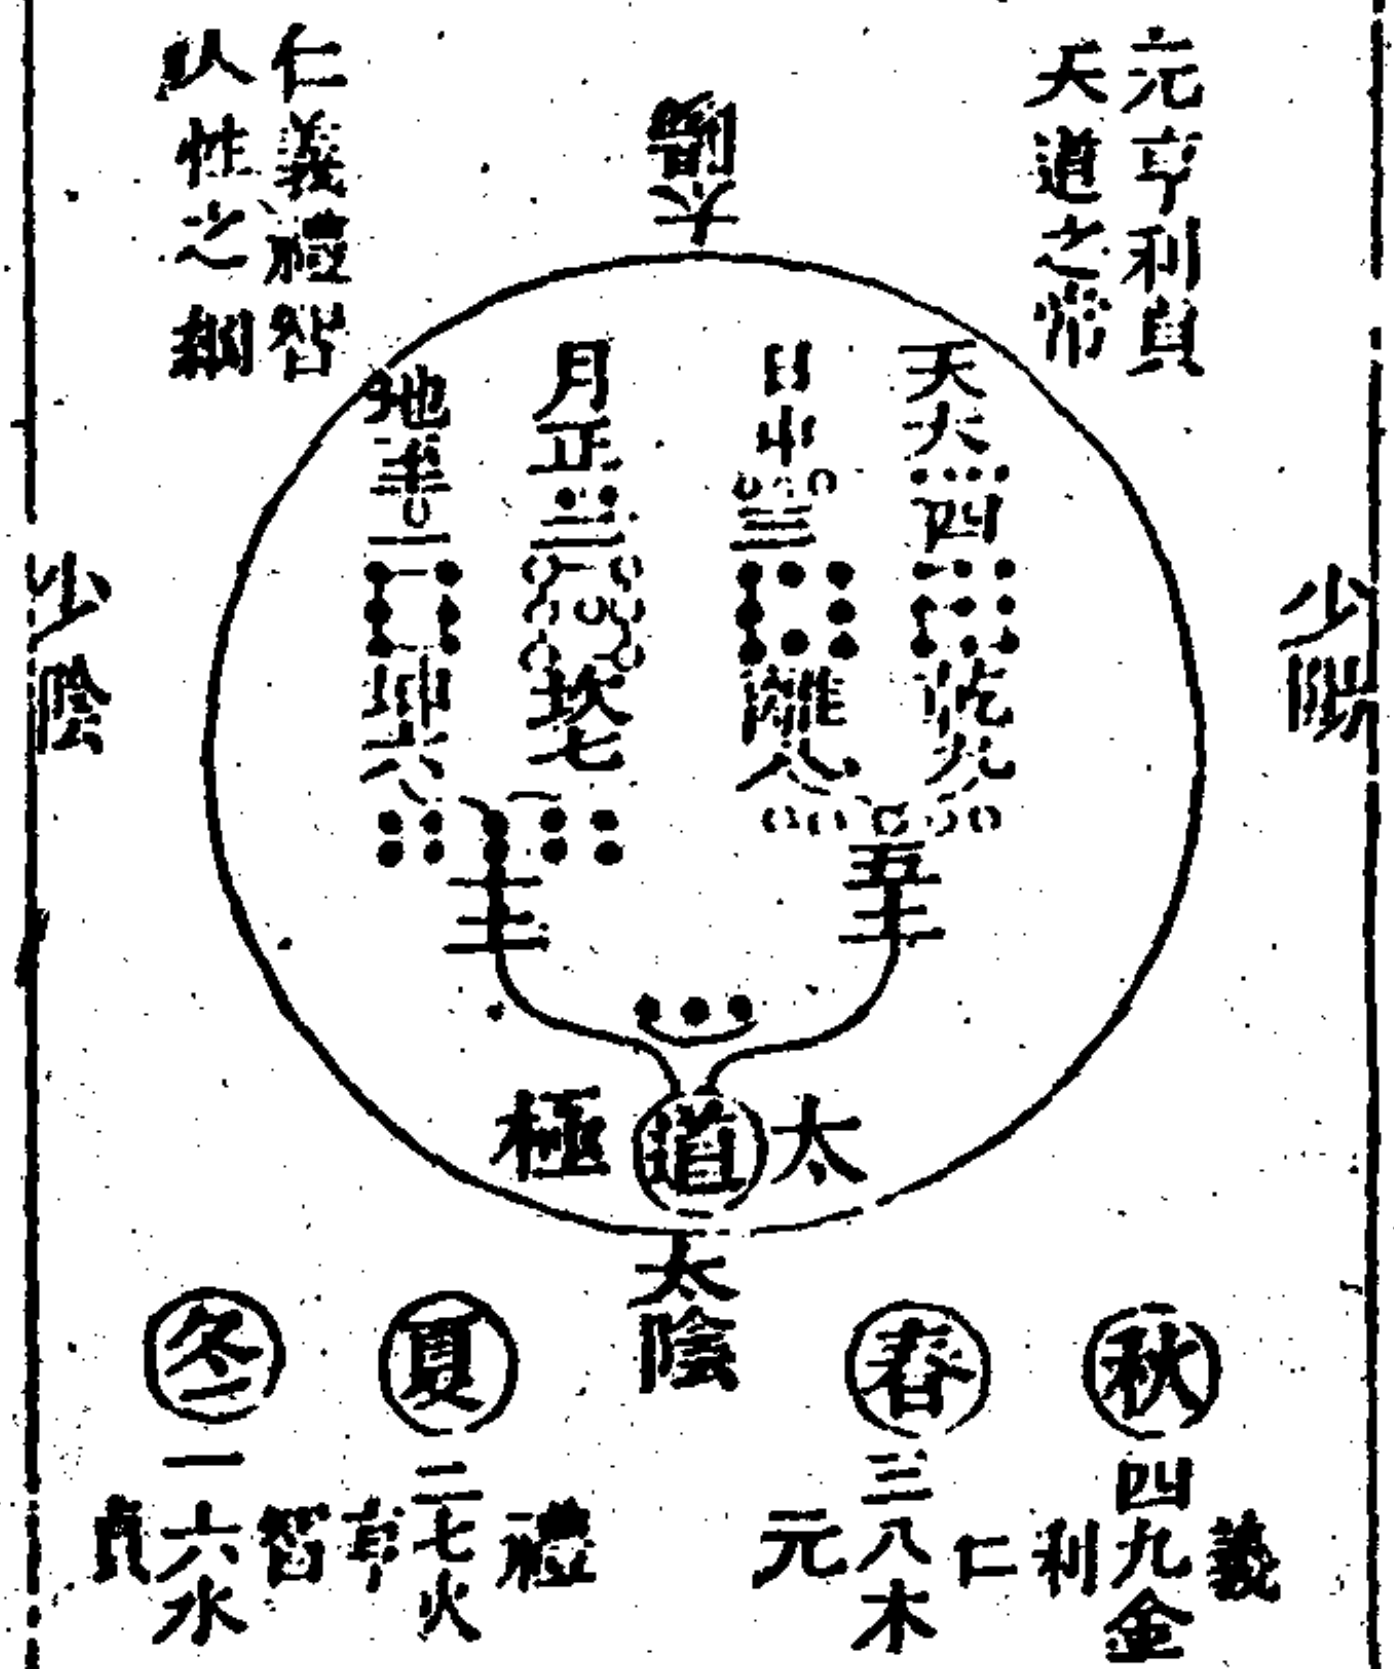 元亨利貞
天道之常
仁義禮智
人性之綱
太陽
少陽
少陰
天大四
乾九
日中三
離八
月正二
坎七
地一
坤六
五十
太道極
太陰
秋
四九金
義
利
春
三八木
仁
元
夏
二七火
禮
亨
冬
一六水
智
貞